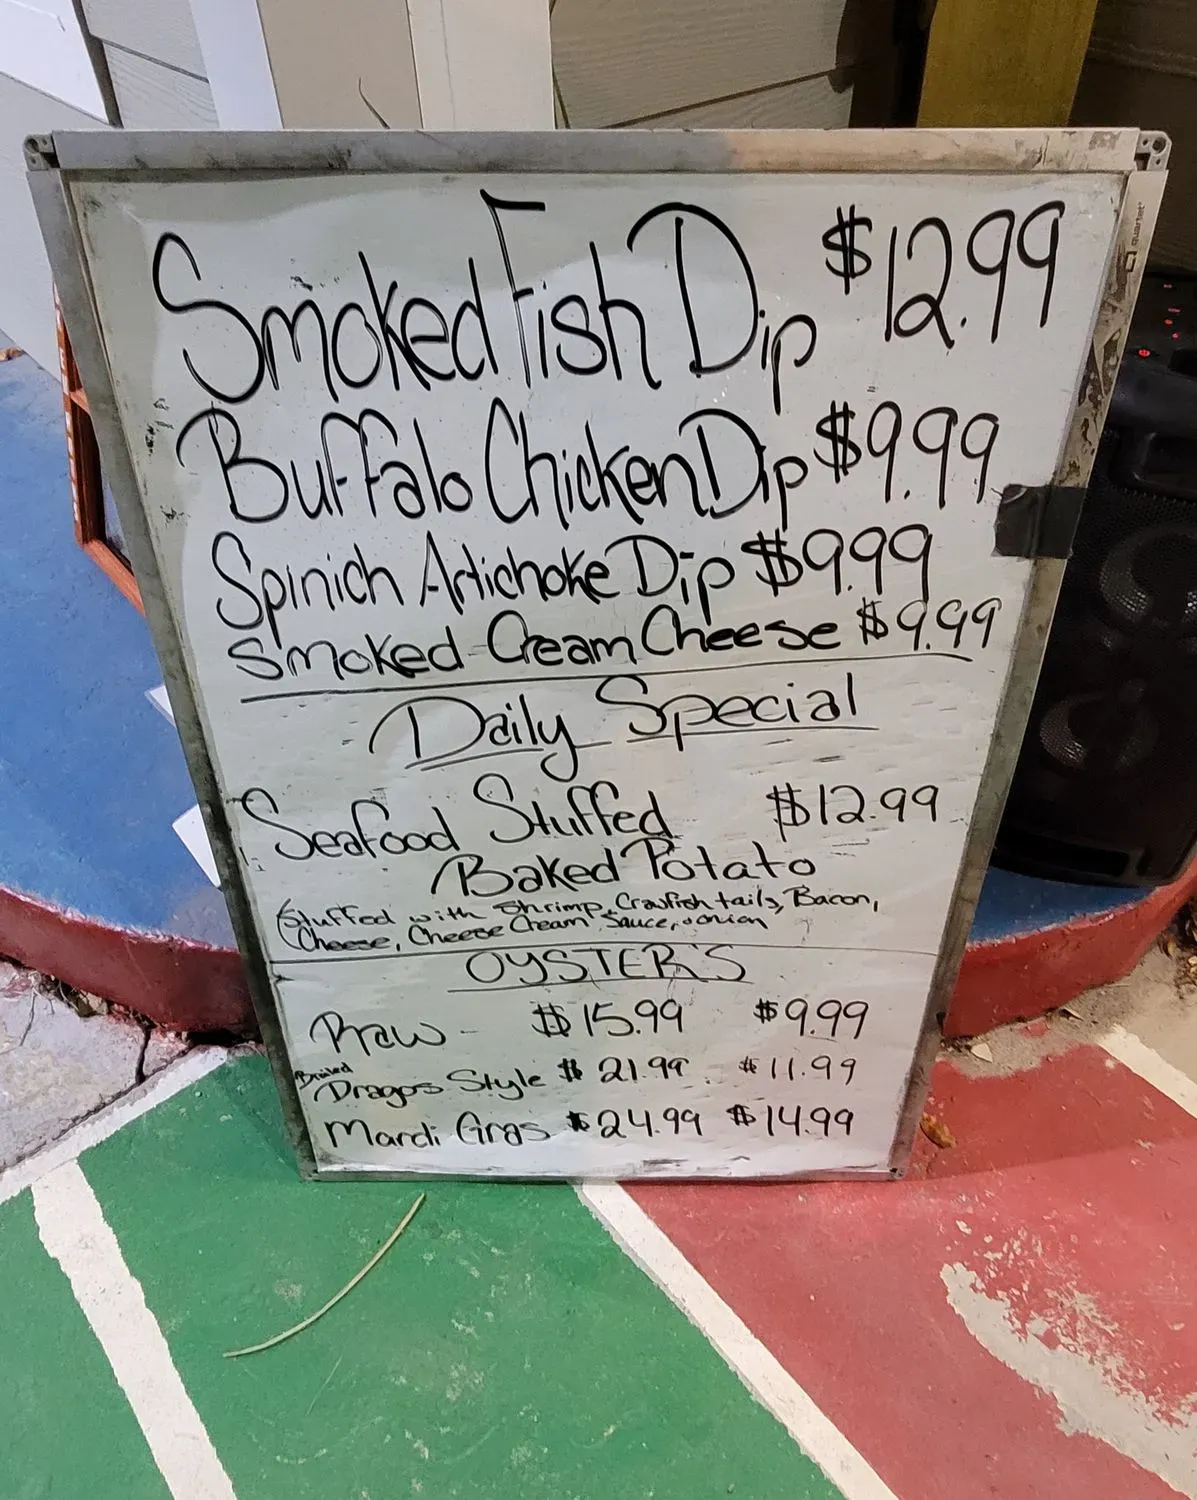 Smoked Fish Dip $12.99
Buffalo Chicken Dip $9.99
Spinich Artichoke Dip $9.99
Smoked Cream Cheese $9.99
Daily Special
Seafood Stuffed $12.99
Baked Potato
(Stuffed with Shrimp, Crawfish tails, Bacon,
Cheese, Cheese Cream Sauce, onion
OYSTER'S
Raw - $15.99 $9.99
Broiled
Dragos Style $21.99 $11.99
Mardi Gras $24.99 $14.99
quartet